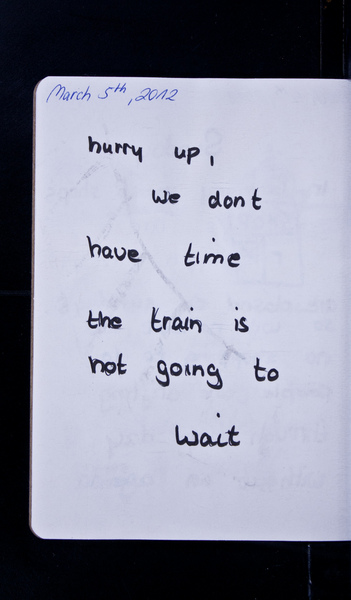 March 5th, 2012
hurry up,
we dont
have time
the train is
not going to
wait